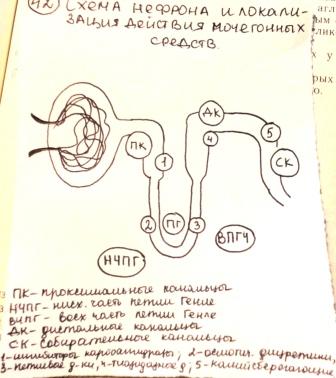 42) СХЕМА НЕФРОНА И ЛОКАЛИ-
ЗАЦИЯ ДЕЙСТВИЯ МОЧЕГОННЫХ
СРЕДСТВ.
ПК
1
ДК
4
5
СК
2
ПГ
3
НЧПГ
ВПГЧ
ПК - проксимальные канальцы
НЧПГ - нисх. часть петли Генле
ВЧПГ - восх часть петли Генле
ДК - дистальные канальцы
СК - собирательные канальцы
1 - ингибиторы карбоангидразы; 2 - осмотич. диуретики,
3 - петлевые д-ки, 4 - тиазидные д; 5 - калийсберегающие